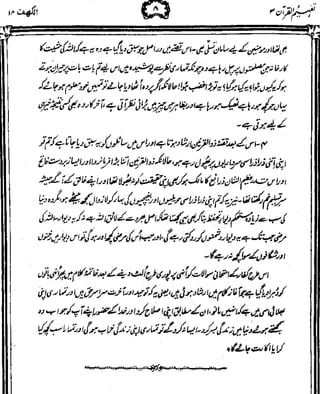 تفہیم القرآن ۳ ۸ الکہف ۱۸
بھی تھا اور مومنین کے لیے سامان تسلی بھی۔ اس قصے میں دراصل جو سبق دیا گیا ہے وہ یہ ہے کہ اللہ کی مشیت کا
کارخانہ جن مصلحتوں پر چل رہا ہے وہ چونکہ تمہاری نظر سے پوشیدہ ہیں اس لیے تم بات بات پر حیران ہوتے
ہو کہ یہ کیوں ہوا؟ یہ کیا ہو گیا؟ یہ تو بڑا غضب ہوا! حالانکہ اگر پردہ اٹھا دیا جائے تو تمہیں خود معلوم ہو جائے کہ
یہاں جو کچھ ہو رہا ہے ٹھیک ہو رہا ہے اور بظاہر جس چیز میں برائی نظر آتی ہے، آخر کار وہ بھی کسی نتیجۂ خیر ہی
کے لیے ہوتی ہے۔
۳۔ اس کے بعد قصۂ ذوالقرنین ارشاد ہوتا ہے اور اس میں سائلوں کو یہ سبق دیا جاتا ہے کہ تم تو
اپنی اتنی ذرا ذرا سی سرداریوں پر پھول رہے ہو، حالانکہ ذوالقرنین اتنا بڑا فرمانروا اور ایسا زبردست فاتح
اور اس قدر عظیم الشان ذرائع کا مالک ہو کر بھی اپنی حقیقت کو نہ بھولا تھا اور اپنے خالق کے آگے ہمیشہ
سر تسلیم خم رکھتا تھا۔ نیز یہ کہ تم اپنی ذرا ذرا سی حویلیوں اور باغیچوں کی بہار کو لازوال سمجھ بیٹھے ہو، مگر وہ دنیا
کی سب سے زیادہ مستحکم دیوار تحفظ بنا کر بھی یہی سمجھتا تھا کہ اصل بھروسے کے لائق اللہ ہے نہ کہ یہ دیوار۔ اللہ کی
مرضی جب تک ہے یہ دیوار دشمنوں کو روکتی رہے گی، اور جب اس کی مرضی کچھ اور ہو گی تو اس دیوار میں رخنوں
اور شگافوں کے سوا کچھ نہ رہے گا۔
اس طرح کفار کے امتحانی سوالات کو انہی پر پوری طرح الٹ دینے کے بعد خاتمۂ کلام میں پھر انہی باتوں
کو دہرا دیا گیا ہے جو آغاز کلام میں ارشاد ہوئی ہیں، یعنی یہ کہ توحید اور آخرت سراسر حق ہیں اور تمہاری اپنی
بھلائی اسی میں ہے کہ انہیں مانو، ان کے مطابق اپنی اصلاح کرو اور خدا کے حضور اپنے آپ کو جواب دہ
سمجھتے ہوئے دنیا میں زندگی بسر کرو۔ ایسا نہ کرو گے تو تمہاری اپنی زندگی خراب ہو گی اور تمہارا سب کچھ کیا
کرایا اکارت جائے گا۔